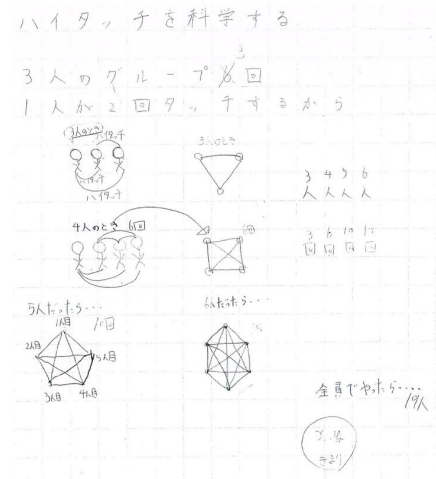 ハイタッチを科学する
3
3人のグループ6回
1人が2回タッチするから
3人のとき
ハイタッチ
ハイタッチ
ハイタッチ
3人のとき
3 4 5 6
人 人 人 人
3 6 10 15
回 回 回 回
4人のとき 6回
6回
5人だったら・・・・
10回
1人目
2人目
3人目
4人目
5人目
6人だったら・・・・
全員でやったら・・・・・
19人